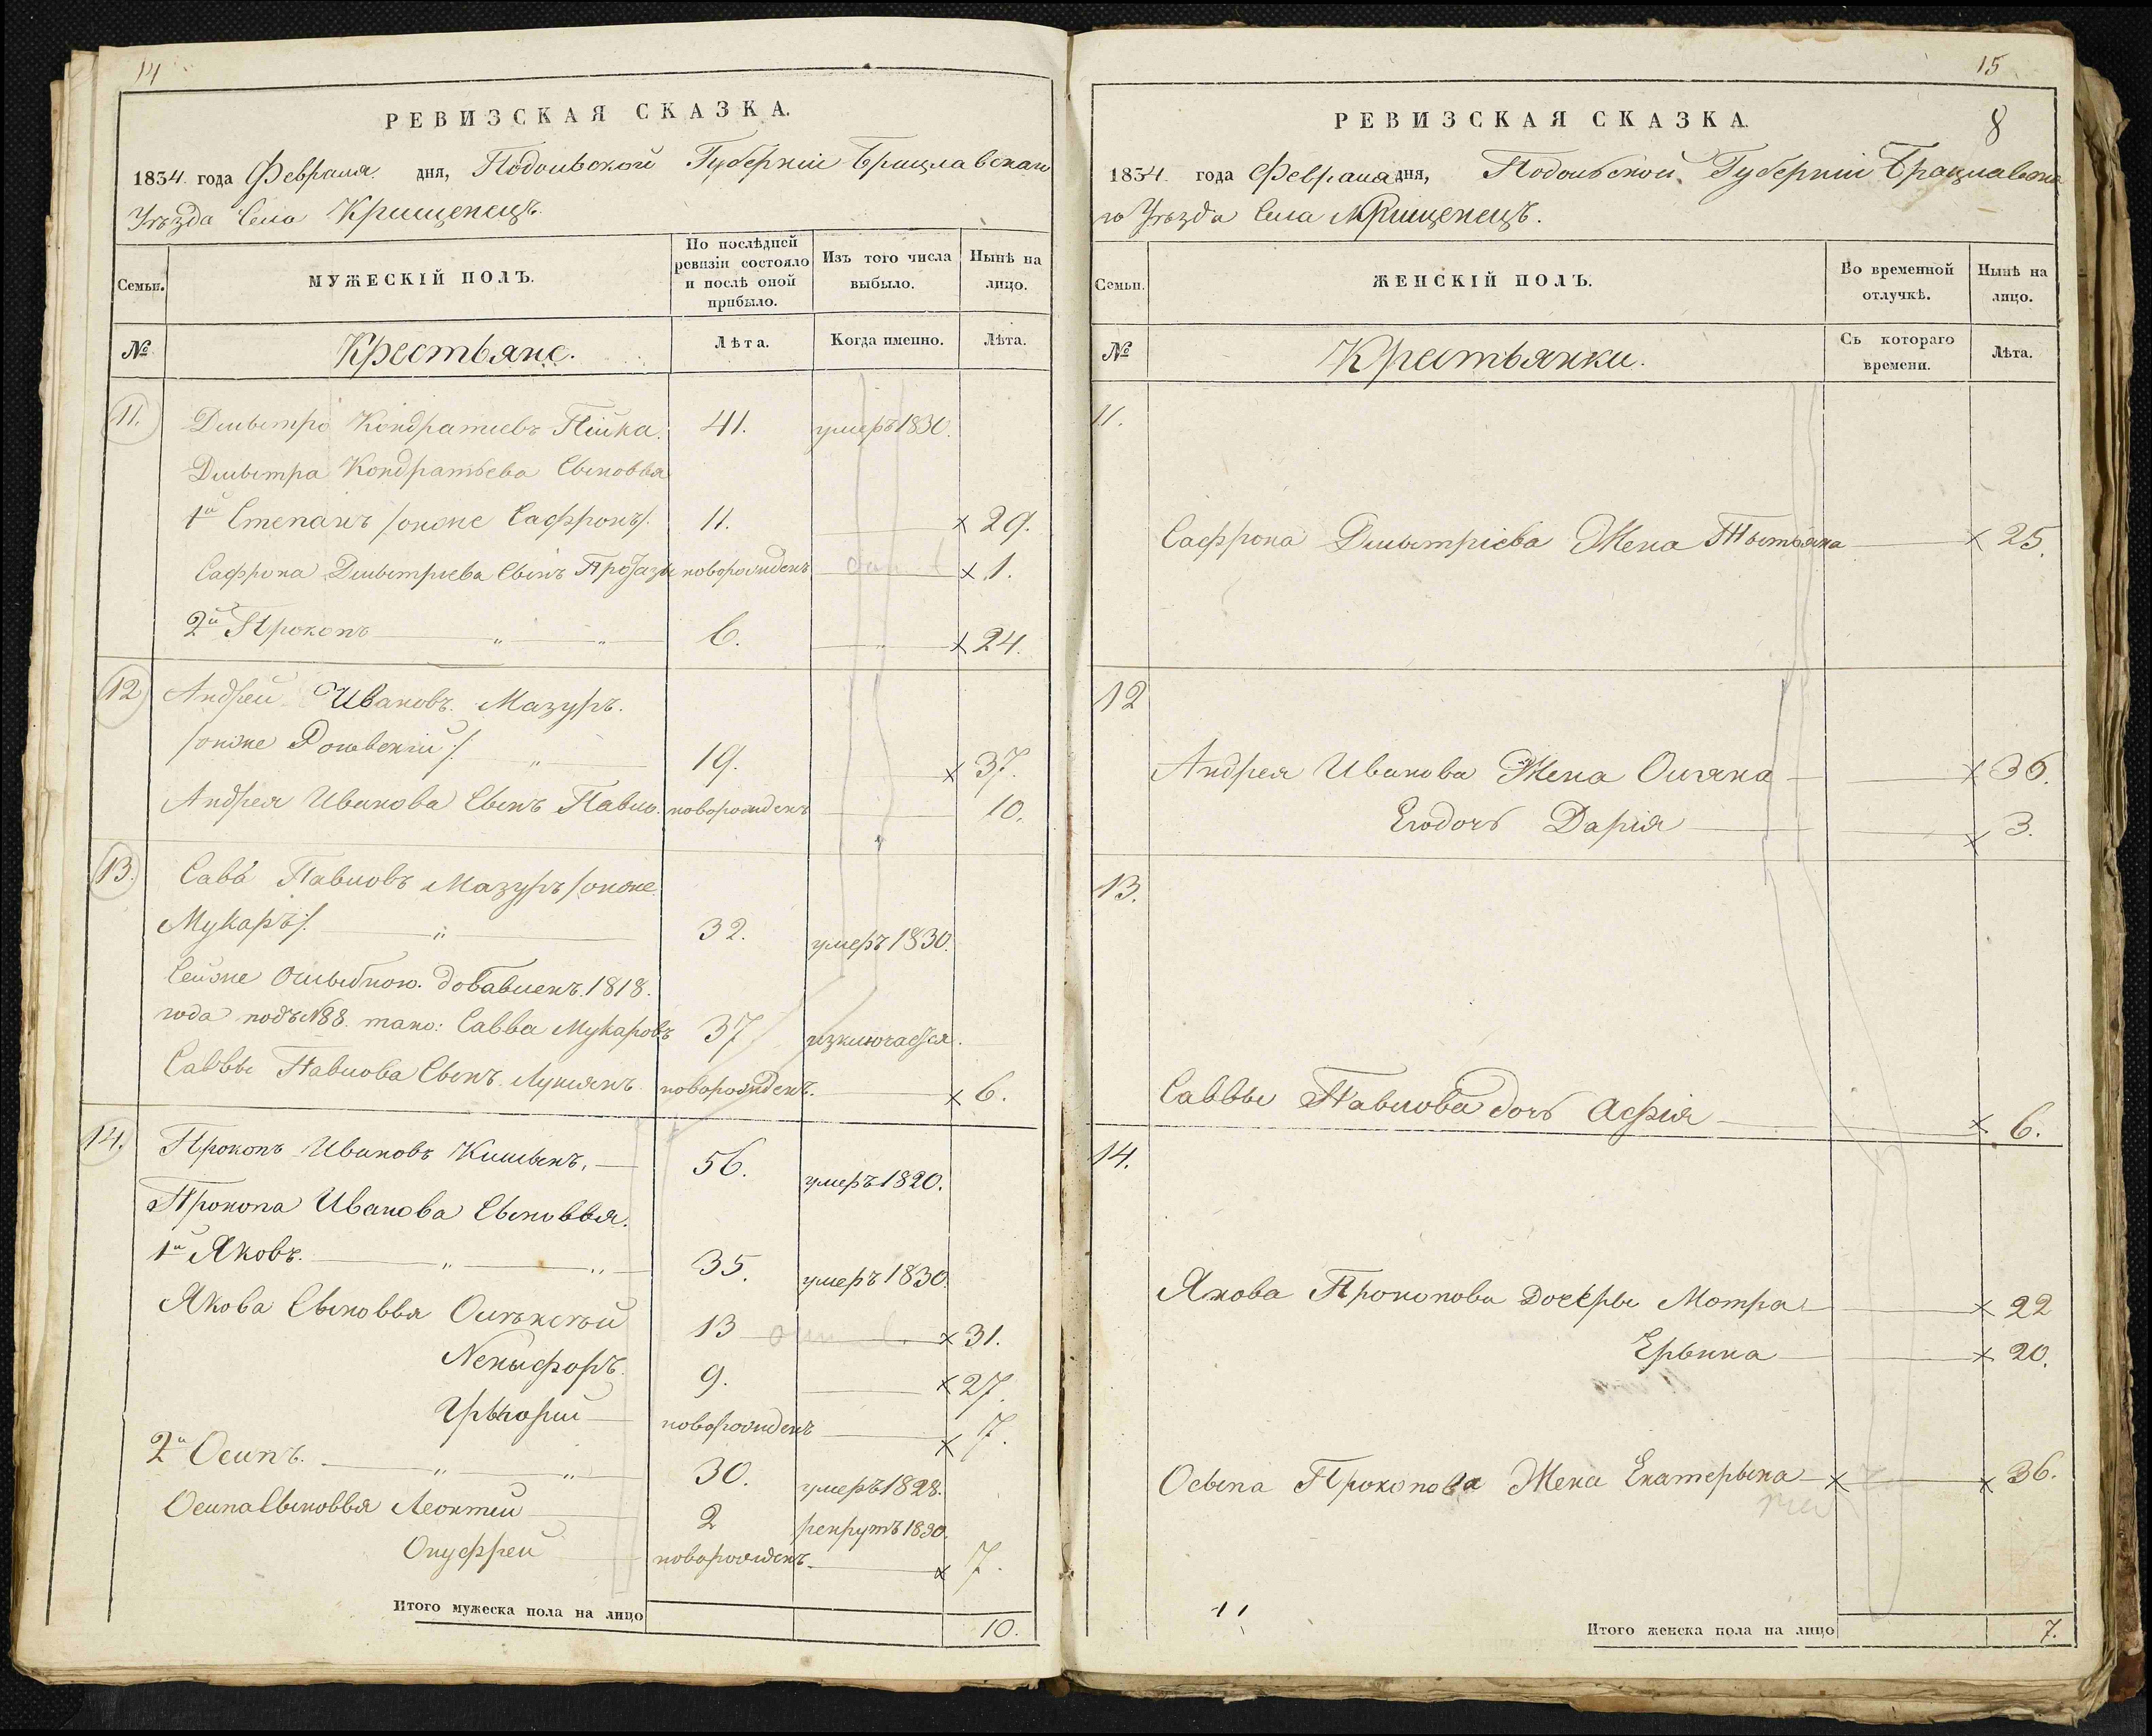 14
РЕВИЗСКАЯ СКАЗКА.
1834. года Февраля дня, Подольской Губерніи Брацлавскаго
Уѣзда Села Крищенецъ.
Семьи.
МУЖЕСКІЙ ПОЛЪ.
По послѣдней ревизіи состояло и послѣ оной прибыло.
Изъ того числа выбыло.
Нынѣ на лицо.
№
Крестьяне.
Лѣта.
Когда именно.
Лѣта.
11. Дмытро Кондратіевъ Пійка. 41. умеръ 1830.
Дмытра Кондратьева Сыновья
1й Степанъ /онже Сафронъ/. 11. × 29.
Сафрона Дмытріева Сынъ новорожденъ × 1.
2й Прокопъ " " 6. " × 24.
12 Андрей Ивановъ Мазуръ.
/онже /. " 19. × 37.
Андрея Иванова Сынъ Павло. новорожденъ 10.
13. Сава Павловъ Мазуръ /онже
Мукаръ/. " 32. умеръ 1830.
Сейже Ошыбкою добавленъ 1818.
года подъ №88. тако: Савва Мукаровъ 37 изключается.
Саввы Павлова Сынъ Лукіянъ новорожденъ. × 6.
14. Прокопъ Ивановъ 56. умеръ 1820.
Прокопа Иванова Сыновья.
1й Яковъ. " " 35. умеръ 1830.
Якова Сыновья Олѣксѣй 13 × 31.
Некыфоръ 9. × 27.
Грыгорій новорожденъ × 7.
2й Осипъ. " " 30. умеръ 1828.
Осипа Сыновья Леонтій 2 рекрутъ 1830.
Онуфрей новорожденъ × 7.
Итого мужеска пола на лицо 10.
15
8
РЕВИЗСКАЯ СКАЗКА.
1834. года Февраля дня, Подольской Губерніи Брацлавска
го Уѣзда Села Крищенецъ.
Семьи.
ЖЕНСКІЙ ПОЛЪ.
Во временной отлучкѣ.
Нынѣ на лицо.
№
Крестьянки.
Съ котораго времени.
Лѣта.
11.
Сафрона Дмытріева Жена Тытяна × 25.
12
Андрея Иванова Жена Оляна × 36.
Егодочь Дарія × 3.
13.
Саввы Павлова дочь Афія × 6.
14.
Якова Прокопова Дочери Мотра × 22
Ерынка × 20.
Осыпа Прокопова Жена Екатерына × × 36.
Итого женска пола на лицо 7.